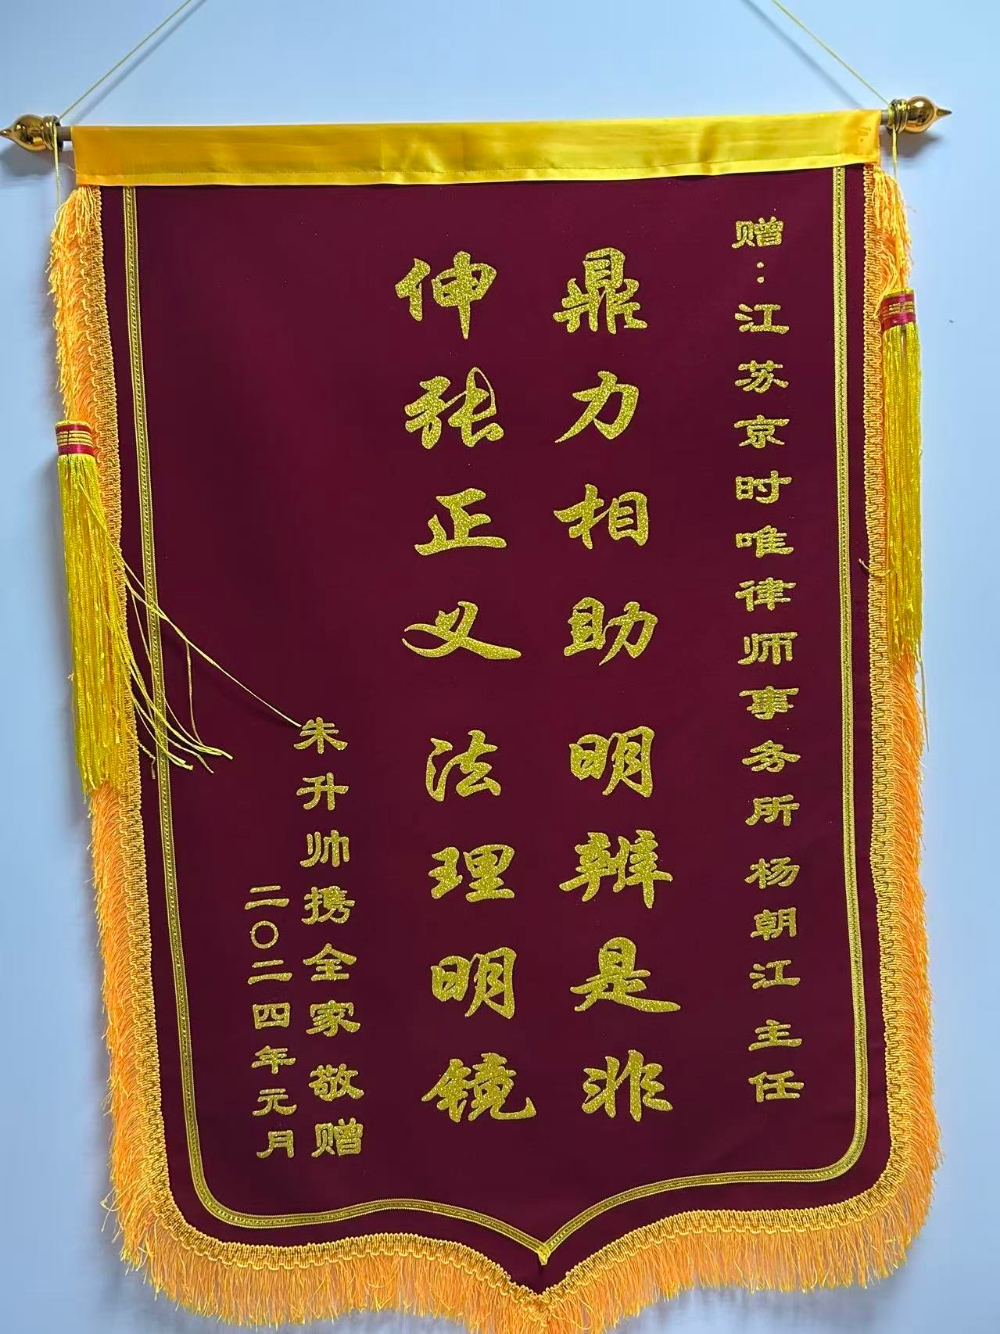 赠：江苏京时唯律师事务所杨朝江主任
鼎力相助明辨是非
伸张正义法理明镜
朱升帅携全家敬赠
二〇二四年元月